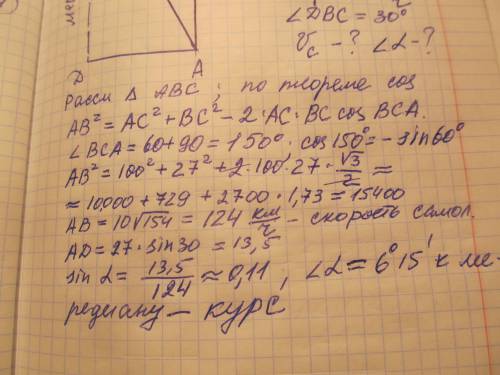 мер
D
A
∠DBC = 30°
V_c - ? ∠α - ?
Рассм △ ABC; по теореме cos
AB² = AC² + BC² - 2·AC·BC cos BCA.
∠BCA = 60 + 90 = 150° · cos 150° = - sin 60°
AB² = 100² + 27² + 2·100·27·√3/2 ≈
≈ 10000 + 729 + 2700·1,73 = 15400
AB = 10√154 = 124 км/ч - скорость самол.
AD = 27·sin 30 = 13,5
sin α = 13,5/124 ≈ 0,11, ∠α = 6°15' к ме-
редиану - курс